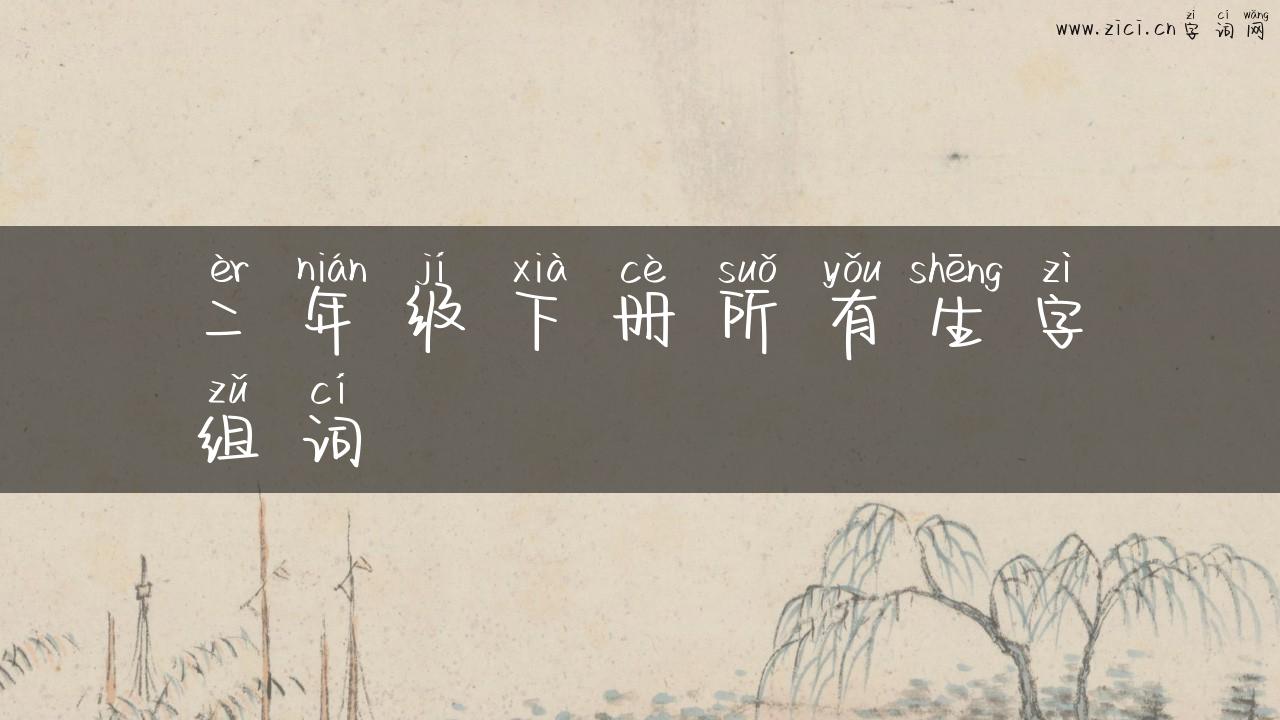 zì cí wǎng
www.zici.cn 字 词 网
èr nián jí xià cè suǒ yǒu shēng zì
二 年 级 下 册 所 有 生 字
zǔ cí
组 词